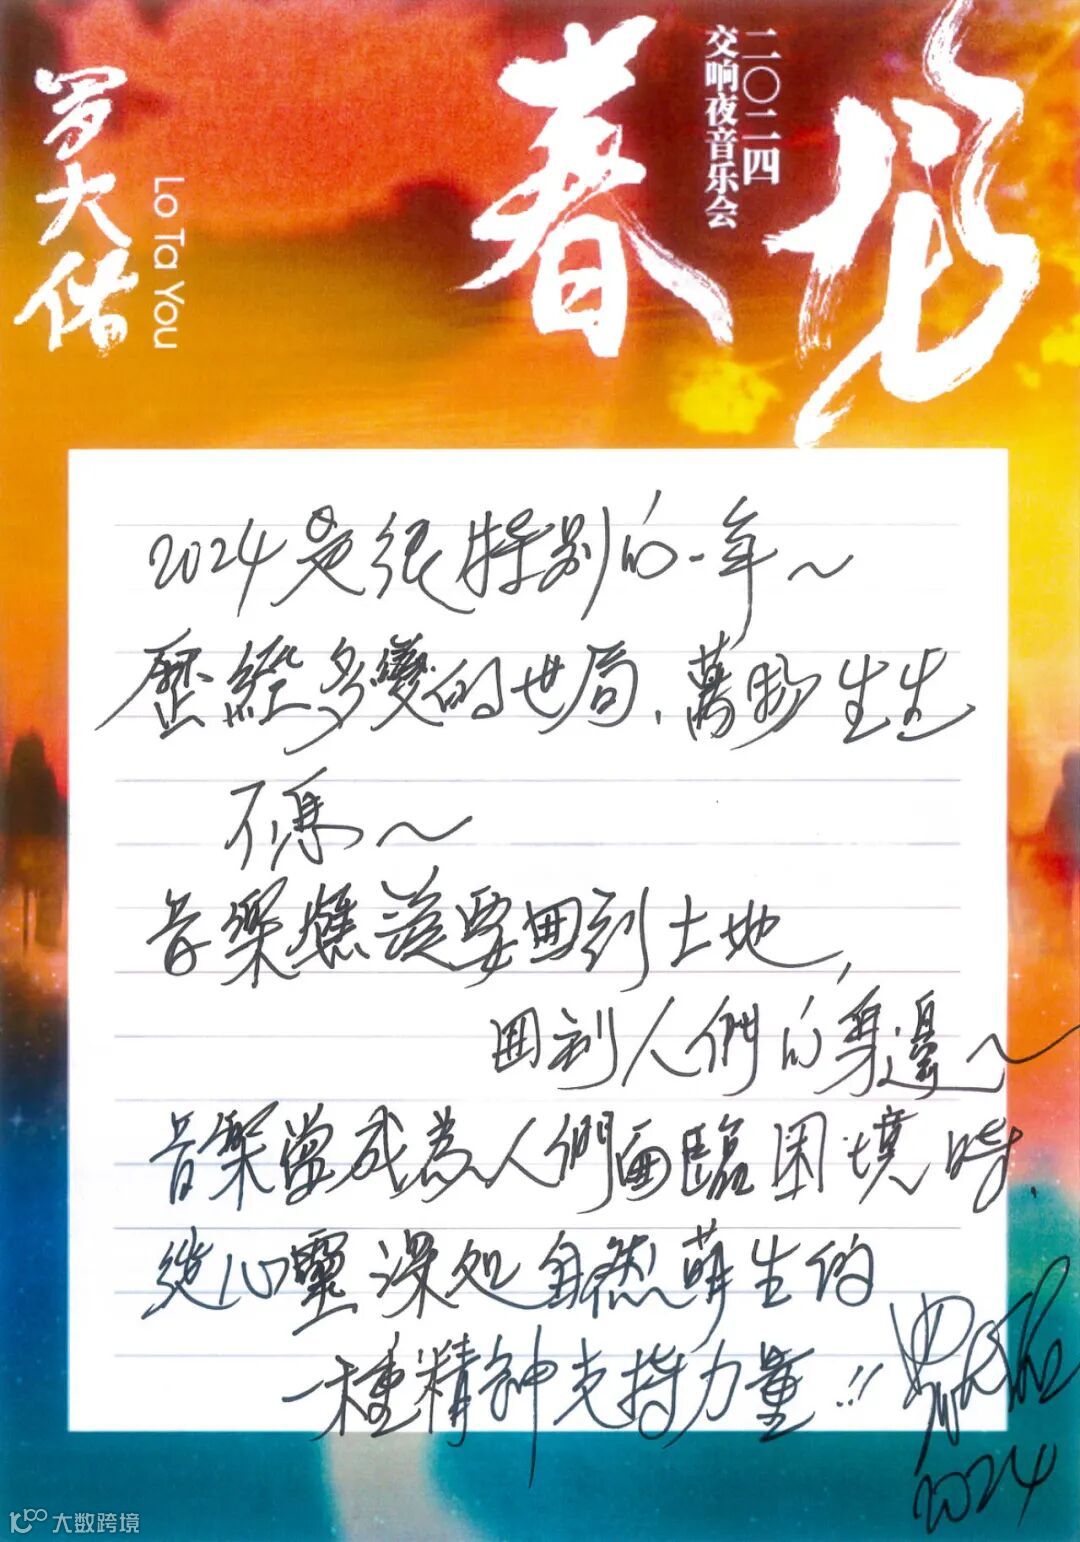 龙春
二〇二四
交响夜音乐会
罗大佑
Lo Ta You
2024是很特別的一年~
歷經多變的世局、萬物生生
不息~
音樂應該要回到土地，
回到人們的身邊~
音樂當成為人們面臨困境時、
從心靈深处自然萌生的
一種精神支持力量!!
羅大佑
2024
大数跨境